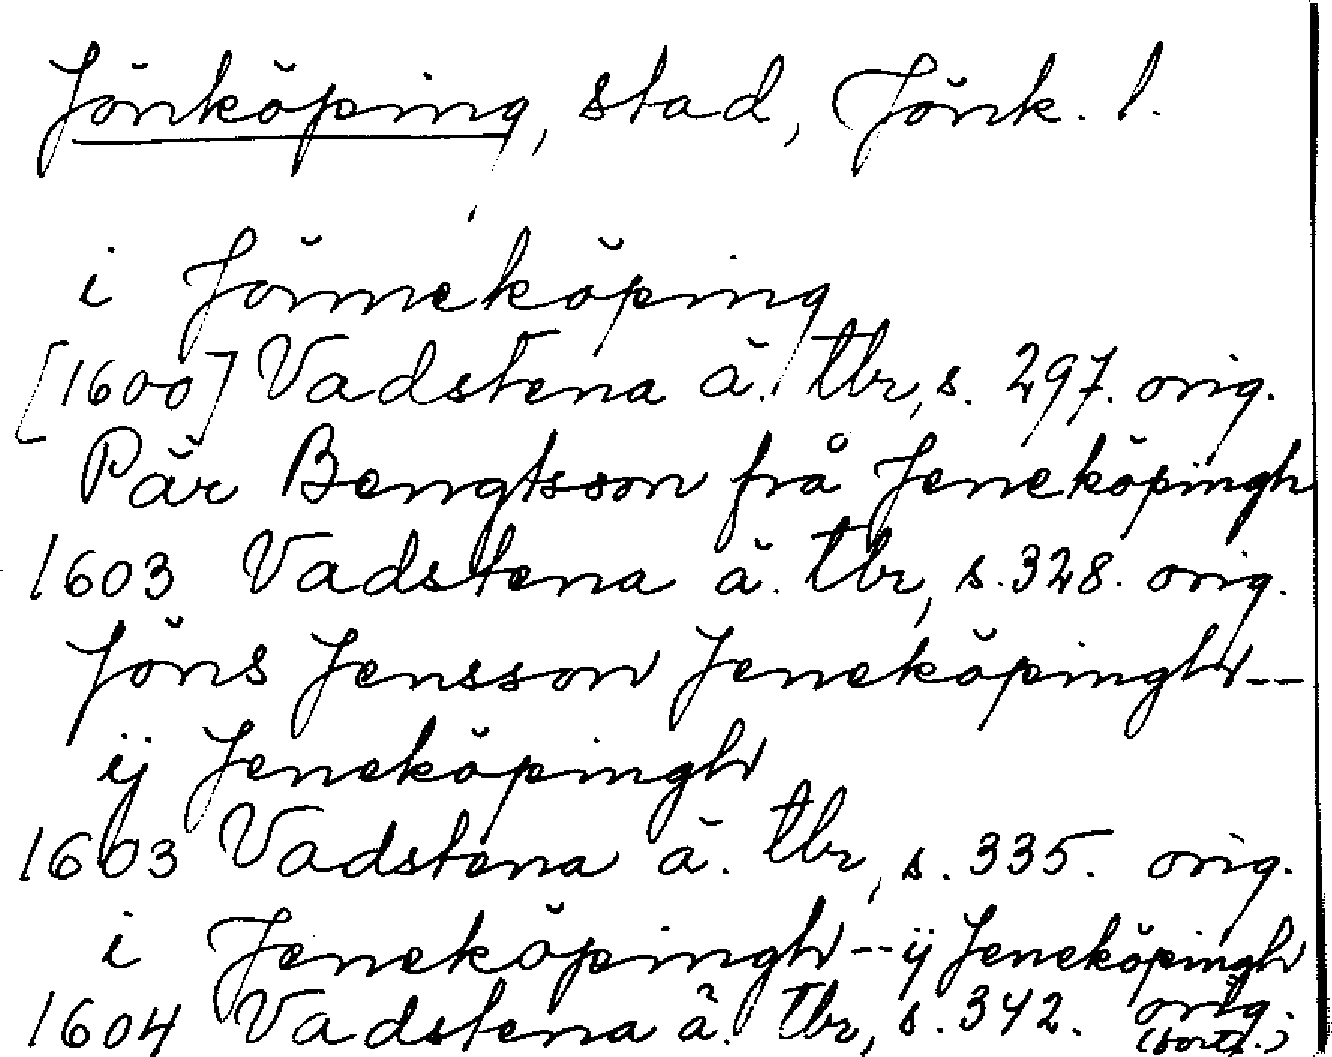 Jönköping, stad, Jönk. l.
i Jönneköping
[1600] Vadstena ä. tbr, s. 297. orig.
Pär Bengtsson frå Jeneköpingh
1603 Vadstena ä. tbr, s. 328. orig.
Jöns Jensson Jeneköpingh--
ij Jeneköpingh
1603 Vadstena ä. tbr, s. 335. orig.
i Jeneköpingh--ij Jeneköpingh
1604 Vadstena ä. tbr, s. 342. orig.
(forts.)